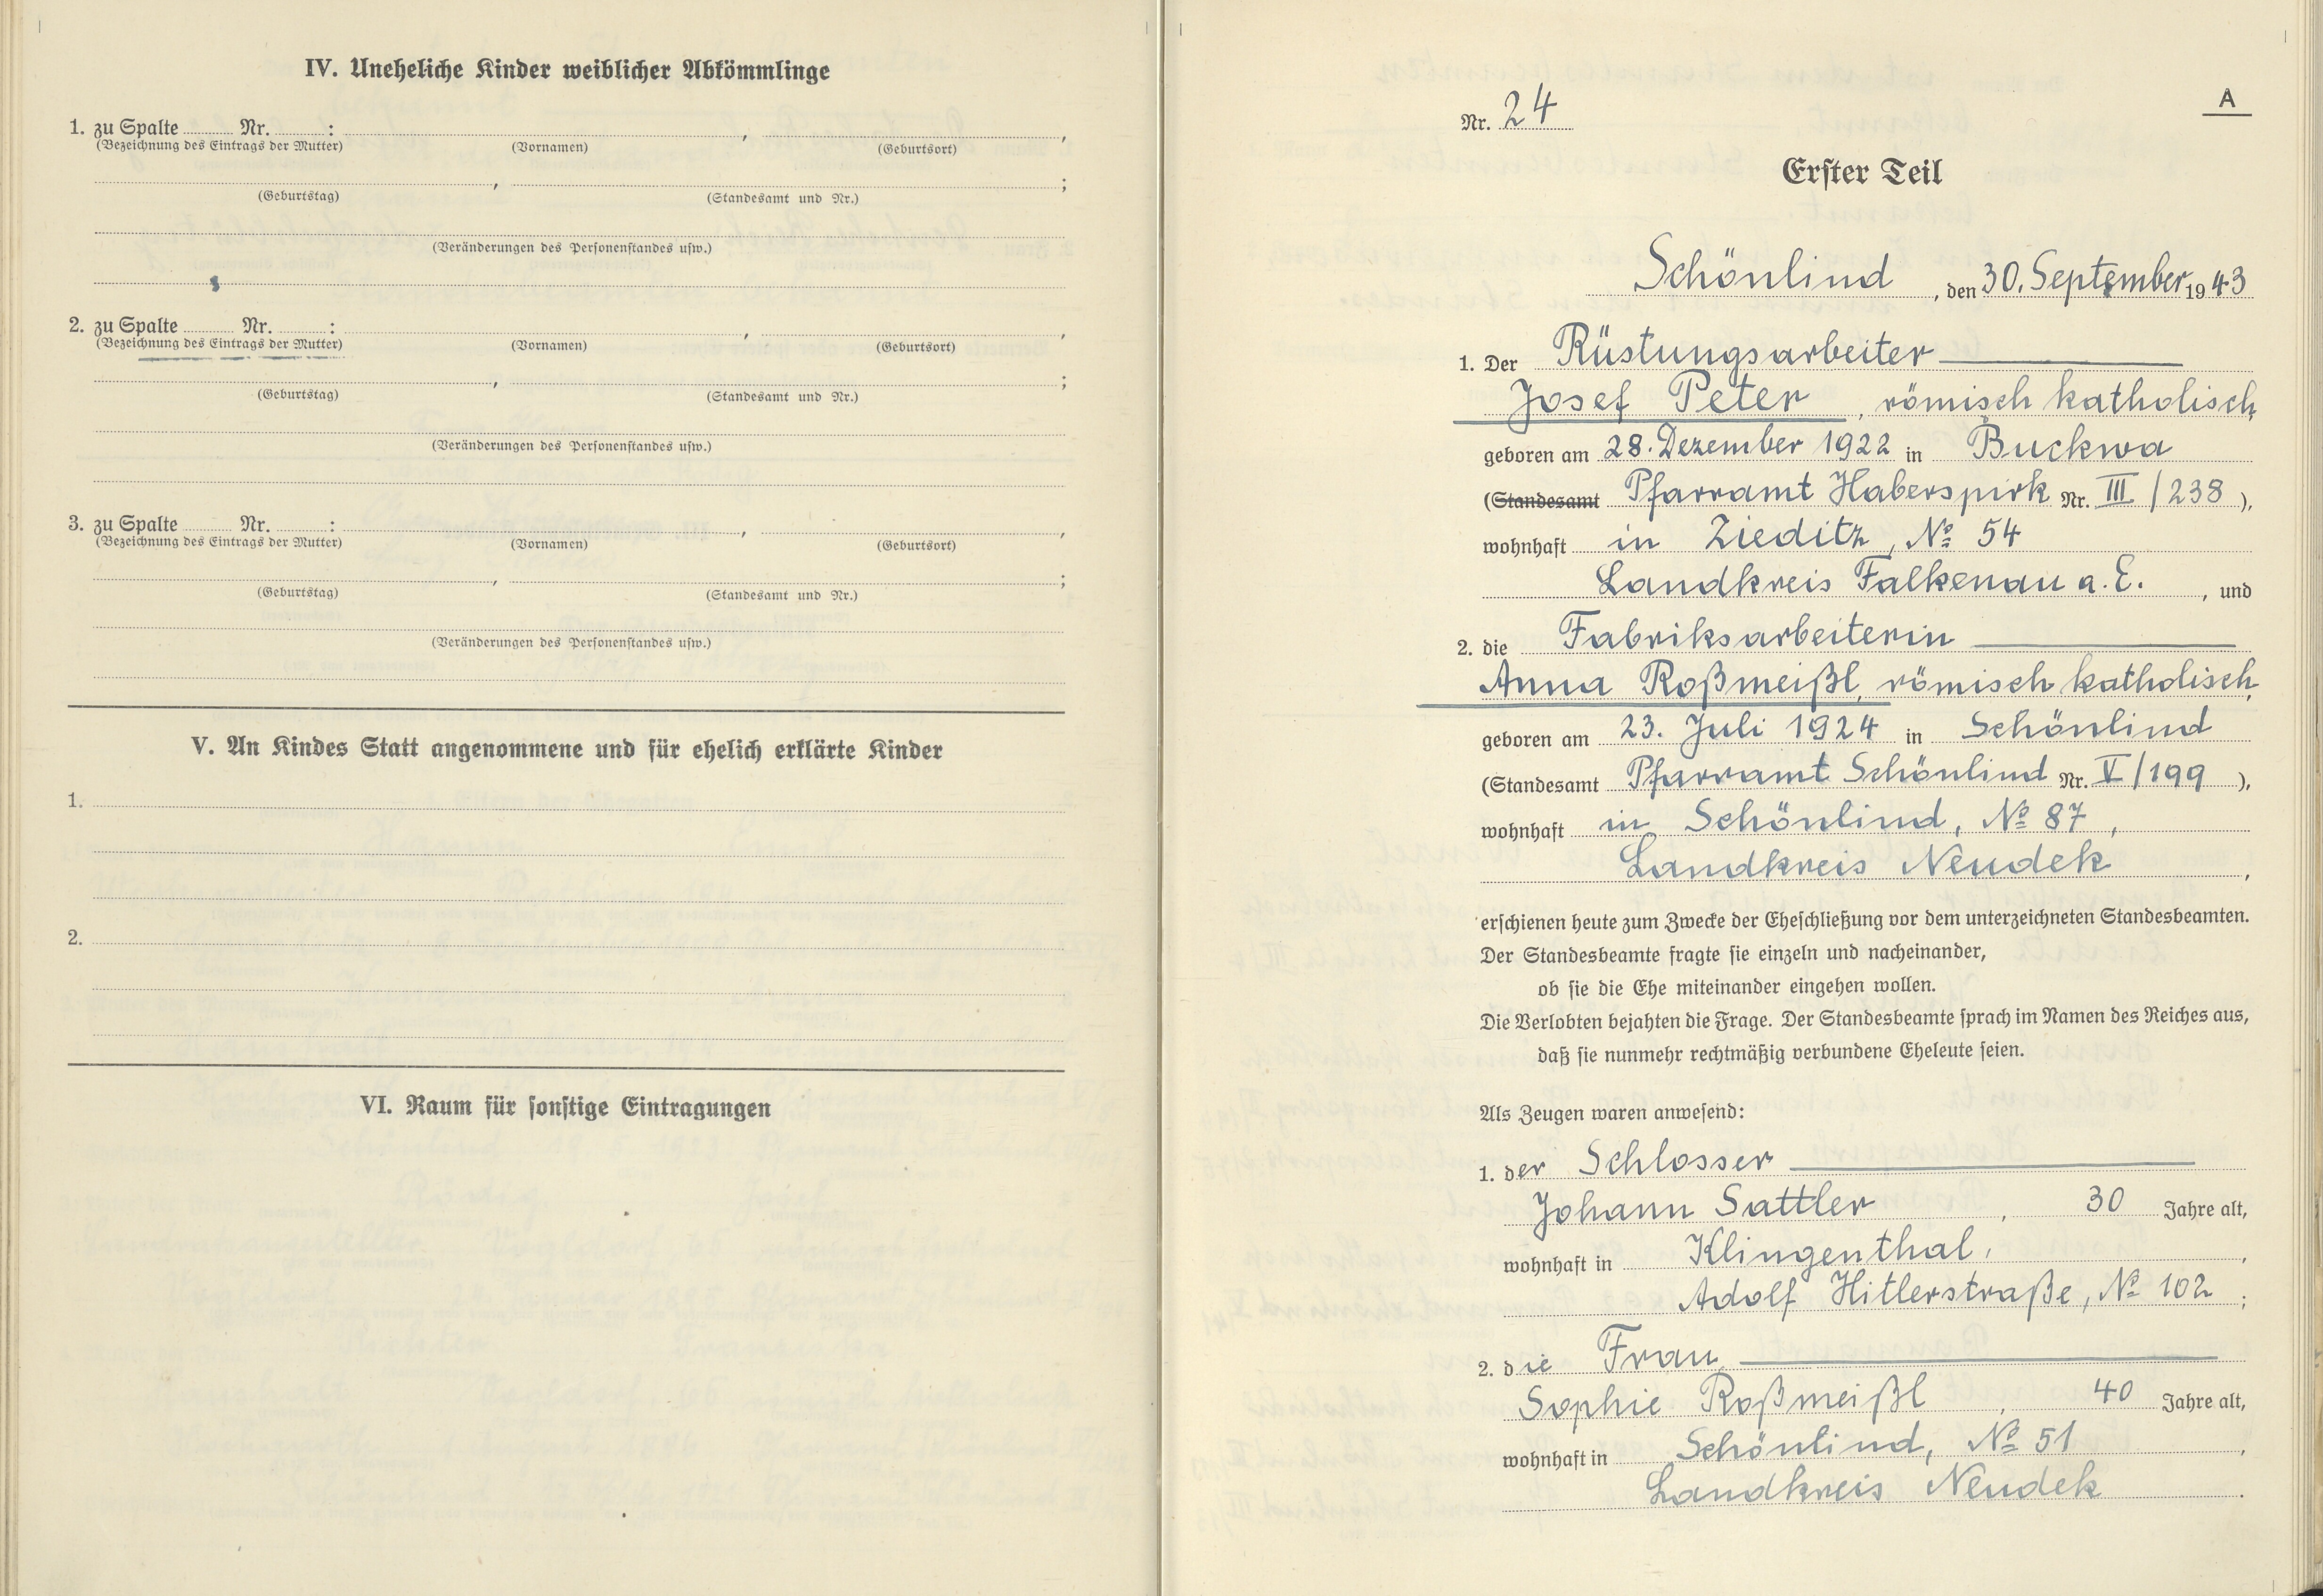 IV. Uneheliche Kinder weiblicher Abkömmlinge
1. zu Spalte ........ Nr. ........ : ........ , ........ ,
(Bezeichnung des Eintrags der Mutter) (Vornamen) (Geburtsort)
........ , ........ ;
(Geburtstag) (Standesamt und Nr.)
(Veränderungen des Personenstandes usw.)
2. zu Spalte ........ Nr. ........ : ........ , ........ ,
(Bezeichnung des Eintrags der Mutter) (Vornamen) (Geburtsort)
........ , ........ ;
(Geburtstag) (Standesamt und Nr.)
(Veränderungen des Personenstandes usw.)
3. zu Spalte ........ Nr. ........ : ........ , ........ ,
(Bezeichnung des Eintrags der Mutter) (Vornamen) (Geburtsort)
........ , ........ ;
(Geburtstag) (Standesamt und Nr.)
(Veränderungen des Personenstandes usw.)
V. An Kindes Statt angenommene und für ehelich erklärte Kinder
1.
2.
VI. Raum für sonstige Eintragungen
A
Nr. 24
Erster Teil
Schönlind, den 30. September 1943
1. Der Rüstungsarbeiter
Josef Peter, römisch katholisch,
geboren am 28. Dezember 1922 in Buckwa
(Standesamt Pfarramt Haberspirk Nr. III/238),
wohnhaft in Zieditz, No 54
Landkreis Falkenau a. E. , und
2. die Fabriksarbeiterin
Anna Roßmeißl, römisch katholisch,
geboren am 23. Juli 1924 in Schönlind
(Standesamt Pfarramt Schönlind Nr. V/199),
wohnhaft in Schönlind, No 87,
Landkreis Neudek ,
erschienen heute zum Zwecke der Eheschließung vor dem unterzeichneten Standesbeamten.
Der Standesbeamte fragte sie einzeln und nacheinander,
ob sie die Ehe miteinander eingehen wollen.
Die Verlobten bejahten die Frage. Der Standesbeamte sprach im Namen des Reiches aus,
daß sie nunmehr rechtmäßig verbundene Eheleute seien.
Als Zeugen waren anwesend:
1. der Schlosser
Johann Sattler , 30 Jahre alt,
wohnhaft in Klingenthal, ,
Adolf Hitlerstraße, No 102 ;
2. die Frau
Sophie Roßmeißl , 40 Jahre alt,
wohnhaft in Schönlind, No 51 ,
Landkreis Neudek .